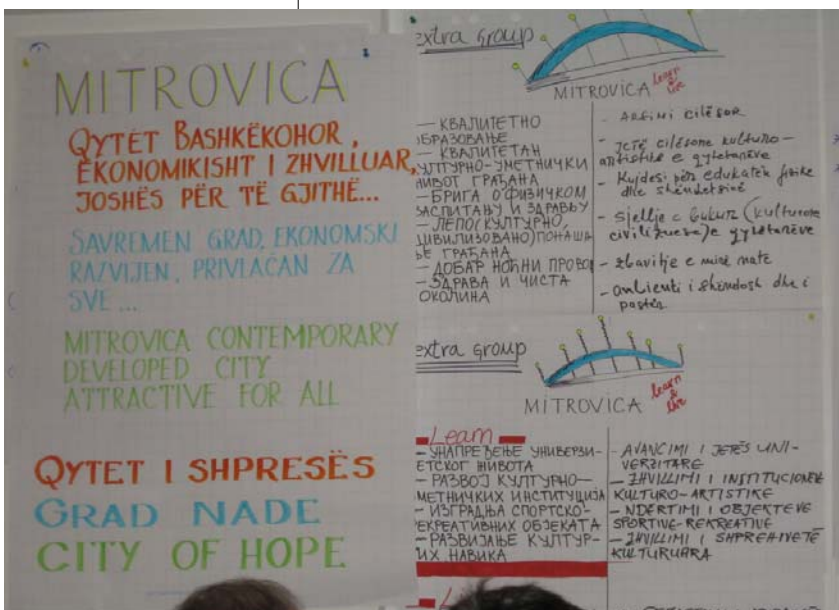 MITROVICA
QYTET BASHKËKOHOR,
EKONOMIKISHT I ZHVILLUAR,
JOSHËS PËR TË GJITHË...
SAVREMEN GRAD, EKONOMSKI
RAZVIJEN, PRIVLAČAN ZA
SVE...
MITROVICA CONTEMPORARY
DEVELOPED CITY
ATTRACTIVE FOR ALL
QYTET I SHPRESËS
GRAD NADE
CITY OF HOPE
extra group
MITROVICA
learn
&
live
— КВАЛИТЕТНО
ОБРАЗОВАЊЕ
— КВАЛИТЕТАН
КУЛТУРНО-УМЕТНИЧКИ
ЖИВОТ ГРАЂАНА
— БРИГА О ФИЗИЧКОМ
ВАСПИТАЊУ И ЗДРАВЉУ
— ЛЕПО(КУЛТУРНО,
ЦИВИЛИЗОВАНО)ПОНАША
ЊЕ ГРАЂАНА
— ДОБАР НОЋНИ ПРОВОД
— ЗДРАВА И ЧИСТА
ОКОЛИНА
- Arsimi cilësor
- jetë cilësore kulturo-
artistike e qytetarëve
- Kujdesi për edukatën fizike
dhe shëndetsinë
- sjellje e bukur (kulturore
civilizuese) e qytetarëve
- zbavitje e mirë nate
- ambienti i shëndosh dhe i
pastër
extra group
MITROVICA
learn
&
live
Learn
— УНАПРЕЂЕЊЕ УНИВЕРЗИ-
ТЕТСКОГ ЖИВОТА
— РАЗВОЈ КУЛТУРНО—
УМЕТНИЧКИХ ИНСТИТУЦИЈА
— ИЗГРАДЊА СПОРТСКО-
РЕКРЕАТИВНИХ ОБЈЕКАТА
— РАЗВИЈАЊЕ КУЛТУР-
НИХ НАВИКА
- AVANCIMI I JETËS UNI-
VERZITARE
- ZHVILLIMI I INSTITUCIONEVE
KULTURO-ARTISTIKE
- NDËRTIMI I OBJEKTEVE
SPORTIVE-REKREATIVE
- ZHVILLIMI I SHPREHIVETË
KULTURUARA